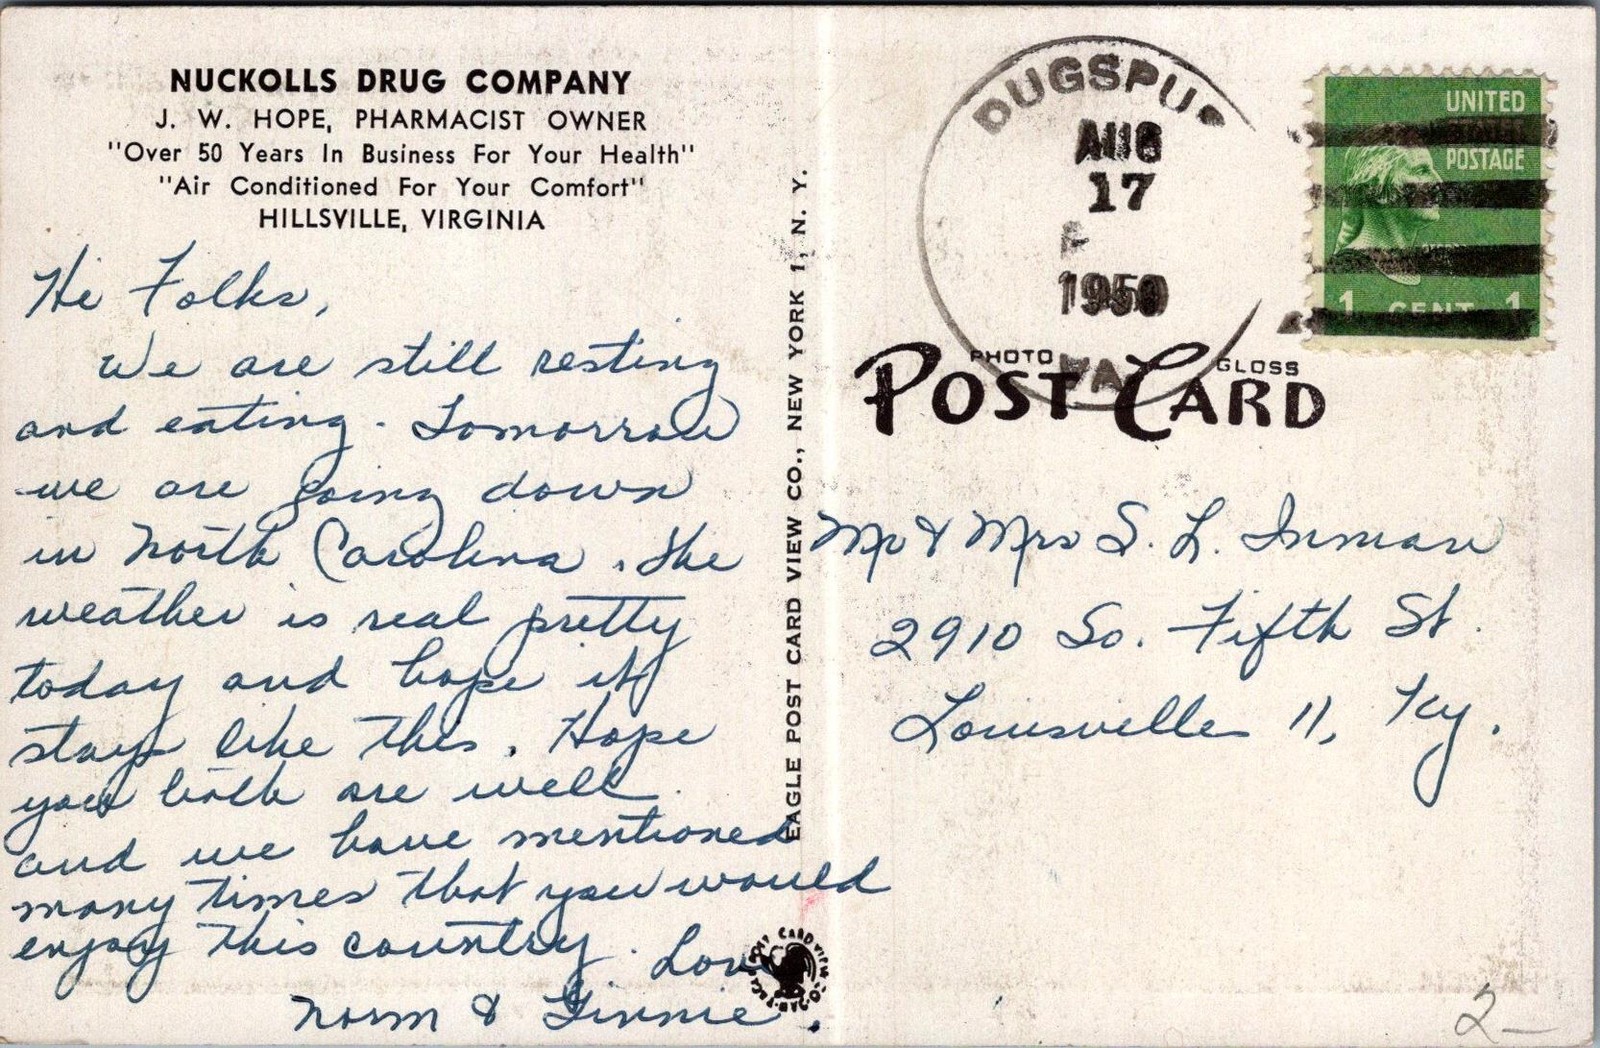 NUCKOLLS DRUG COMPANY
J. W. HOPE, PHARMACIST OWNER
"Over 50 Years In Business For Your Health"
"Air Conditioned For Your Comfort"
HILLSVILLE, VIRGINIA
Hi Folks,
We are still resting
and eating. Tomorrow
we are going down
in North Carolina. The
weather is real pretty
today and hope it
stays like this. Hope
you both are well.
and we have mentioned
many times that you would
enjoy this country. Love
Norm & Ginnie.
EAGLE POST CARD VIEW CO., NEW YORK 1, N. Y.
DUGSPUR
AUG
17
P
1950
VA
UNITED
STATES
POSTAGE
1 CENT 1
PHOTO GLOSS
POST CARD
Mr & Mrs S. L. Inman
2910 So. Fifth St.
Louisville 11, Ky.
2—